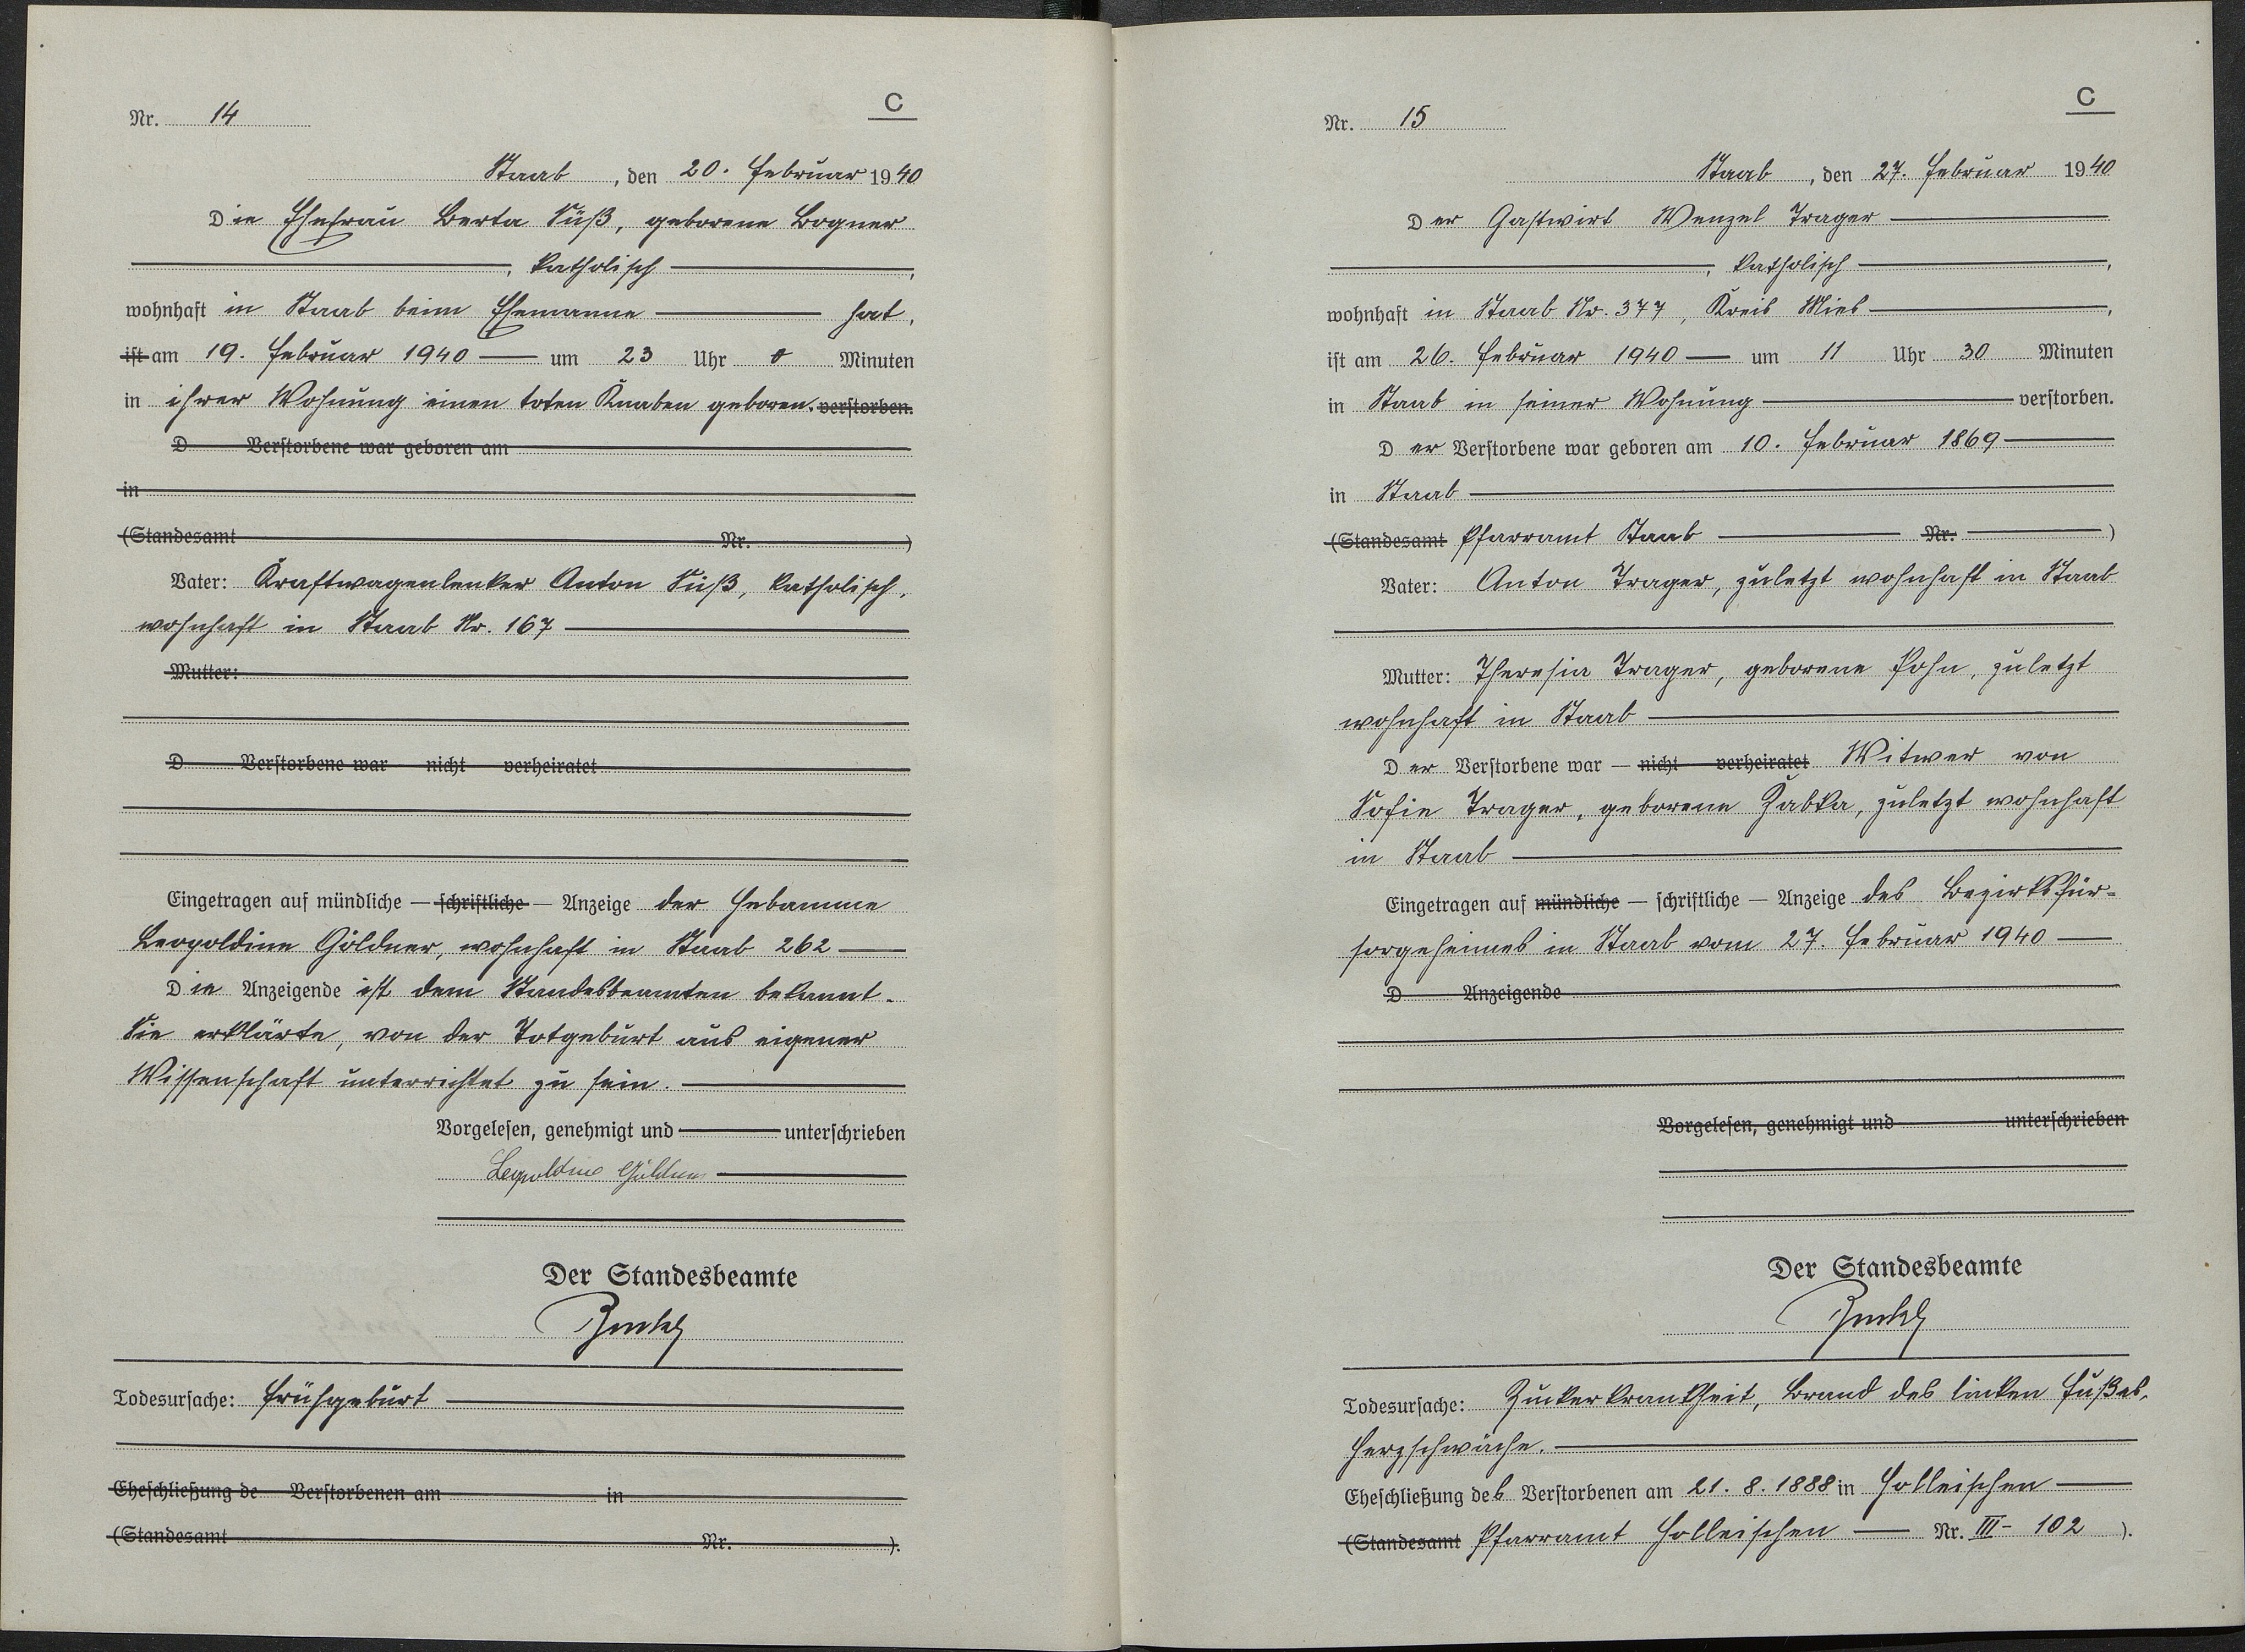 Nr. 14
C
Staab, den 20. Februar 1940
Die Ehefrau Berta Süß, geborene Bogner
, katholisch,
wohnhaft in Staab beim Ehemanne hat,
ist am 19. Februar 1940 um 23 Uhr 0 Minuten
in ihrer Wohnung einen toten Knaben geboren. verstorben.
D Verstorbene war geboren am
in
(Standesamt Nr. )
Vater: Kraftwagenlenker Anton Süß, katholisch,
wohnhaft in Staab Nr. 167
Mutter:
D Verstorbene war nicht verheiratet
Eingetragen auf mündliche — schriftliche — Anzeige der Hebamme
Leopoldine Göldner, wohnhaft in Staab 262
Die Anzeigende ist dem Standesbeamten bekannt.
Sie erklärte, von der Totgeburt aus eigener
Wissenschaft unterrichtet zu sein.
Vorgelesen, genehmigt und unterschrieben
Leopoldine Göldner
Der Standesbeamte
Todesursache: Frühgeburt
Eheschließung de Verstorbenen am in
(Standesamt Nr. ).
Nr. 15
C
Staab, den 27. Februar 1940
Der Gastwirt Wenzel Trager
, katholisch,
wohnhaft in Staab Nr. 377, Kreis Mies,
ist am 26. Februar 1940 um 11 Uhr 30 Minuten
in Staab in seiner Wohnung verstorben.
Der Verstorbene war geboren am 10. Februar 1869
in Staab
(Standesamt Pfarramt Staab Nr. )
Vater: Anton Trager, zuletzt wohnhaft in Staab
Mutter: Theresia Trager, geborene Pohn, zuletzt
wohnhaft in Staab
Der Verstorbene war — nicht verheiratet Witwer von
Sofie Trager, geborene Žabka, zuletzt wohnhaft
in Staab
Eingetragen auf mündliche — schriftliche — Anzeige des Bezirksfür=
sorgeheimes in Staab vom 27. Februar 1940
D Anzeigende
Vorgelesen, genehmigt und unterschrieben
Der Standesbeamte
Todesursache: Zuckerkrankheit, Brand des linken Fußes,
Herzschwäche.
Eheschließung des Verstorbenen am 21. 8. 1888 in Holleischen
(Standesamt Pfarramt Holleischen Nr. III - 102 ).